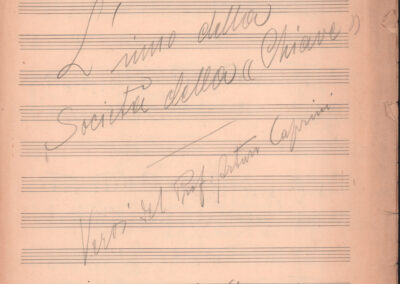 L'inno della
Società della "Chiave"
Versi del Prof. Arturo Caprini